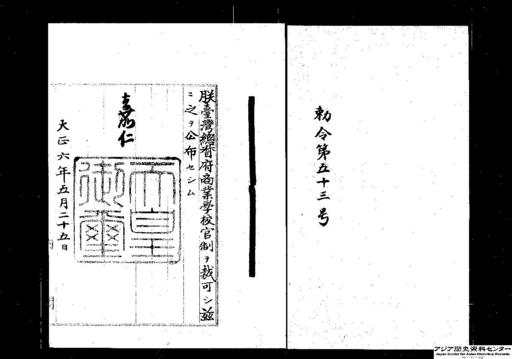 勅令第五十三号
朕臺灣總督府商業学校官制ヲ裁可シ茲
ニ之ヲ公布セシム
嘉仁
天皇御璽
大正六年五月二十五日
アジア歴史資料センター
Japan Center for Asian Historical Records